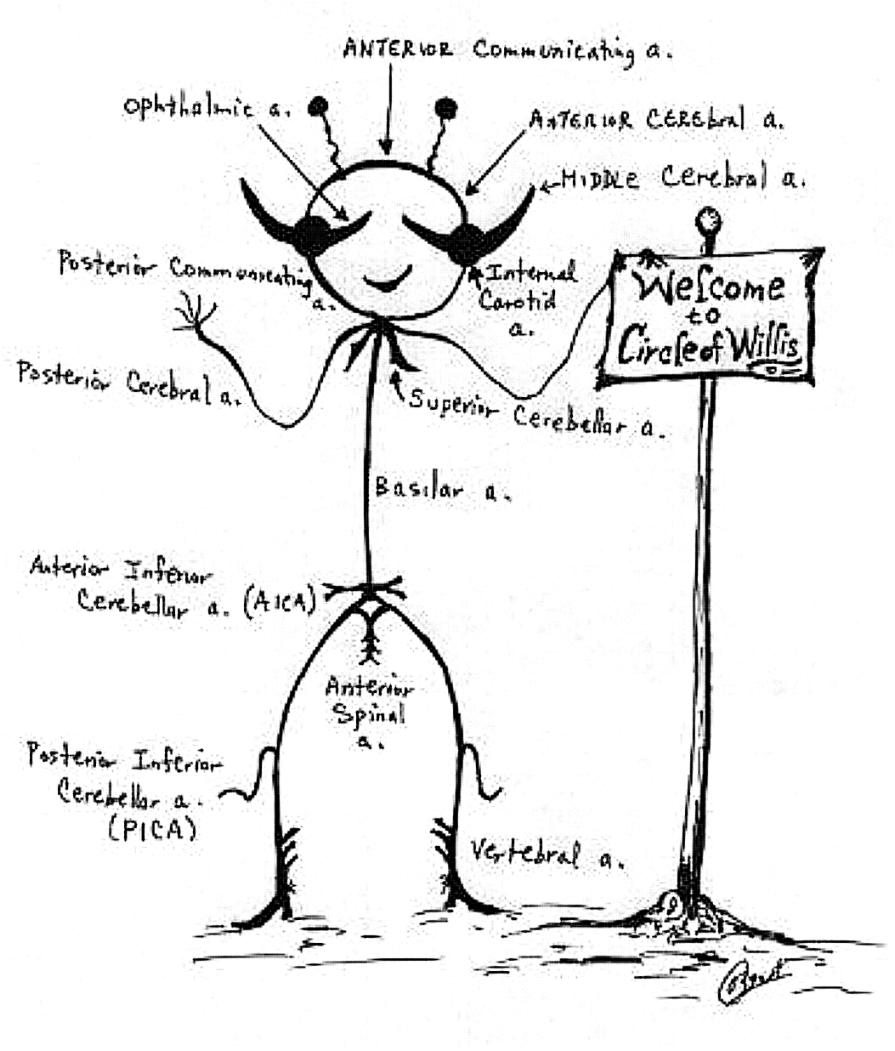 ANTERIOR Communicating a.
Ophthalmic a.
ANTERIOR CEREbral a.
MIDDLE Cerebral a.
Posterior Communicating
a.
Internal
Carotid
a.
Welcome
to
Circle of Willis
Posterior Cerebral a.
Superior Cerebellar a.
Basilar a.
Anterior Inferior
Cerebellar a. (AICA)
Anterior
Spinal
a.
Posterior Inferior
Cerebellar a.
(PICA)
Vertebral a.